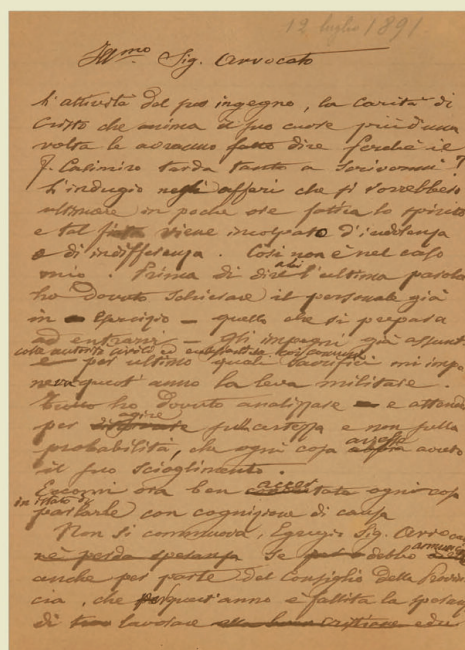 12 luglio 1891.
Ill.mo Sig. Avvocato
L'attività del suo ingegno, la carità di
Cristo che anima il suo cuore più d'una
volta le avranno fatto dire perchè il
f. Casimiro tarda tanto a scrivermi?
L'indugio negli affari che si vorrebbero
ultimare in poche ore fatica lo spirito
e tal viene incolpato d'indolenza
o di indifferenza. Così non è nel caso
mio. Prima di dire l'ultima parola
ho dovuto schierare il personale già
in esercizio – quello che si prepara
ad entrarvi – gli impegni già assunti
colle autorità civili ed
e per ultimo quali sacrifici mi impo
neva quest'anno la leva militare.
Tutto ho dovuto analizzare – e attendere
per agire sulla certezza e non sulla
probabilità, che ogni cosa avesse avuto
il suo scioglimento.
Eccomi ora ben ogni cosa
in istato di
parlarle con cognizione di causa
Non si commuova, Egregio Sig. Avvocato
nè perda speranza se debbo
anche per parte del Consiglio della Provin
cia, che quest'anno è fallita la speranza
di lavorare